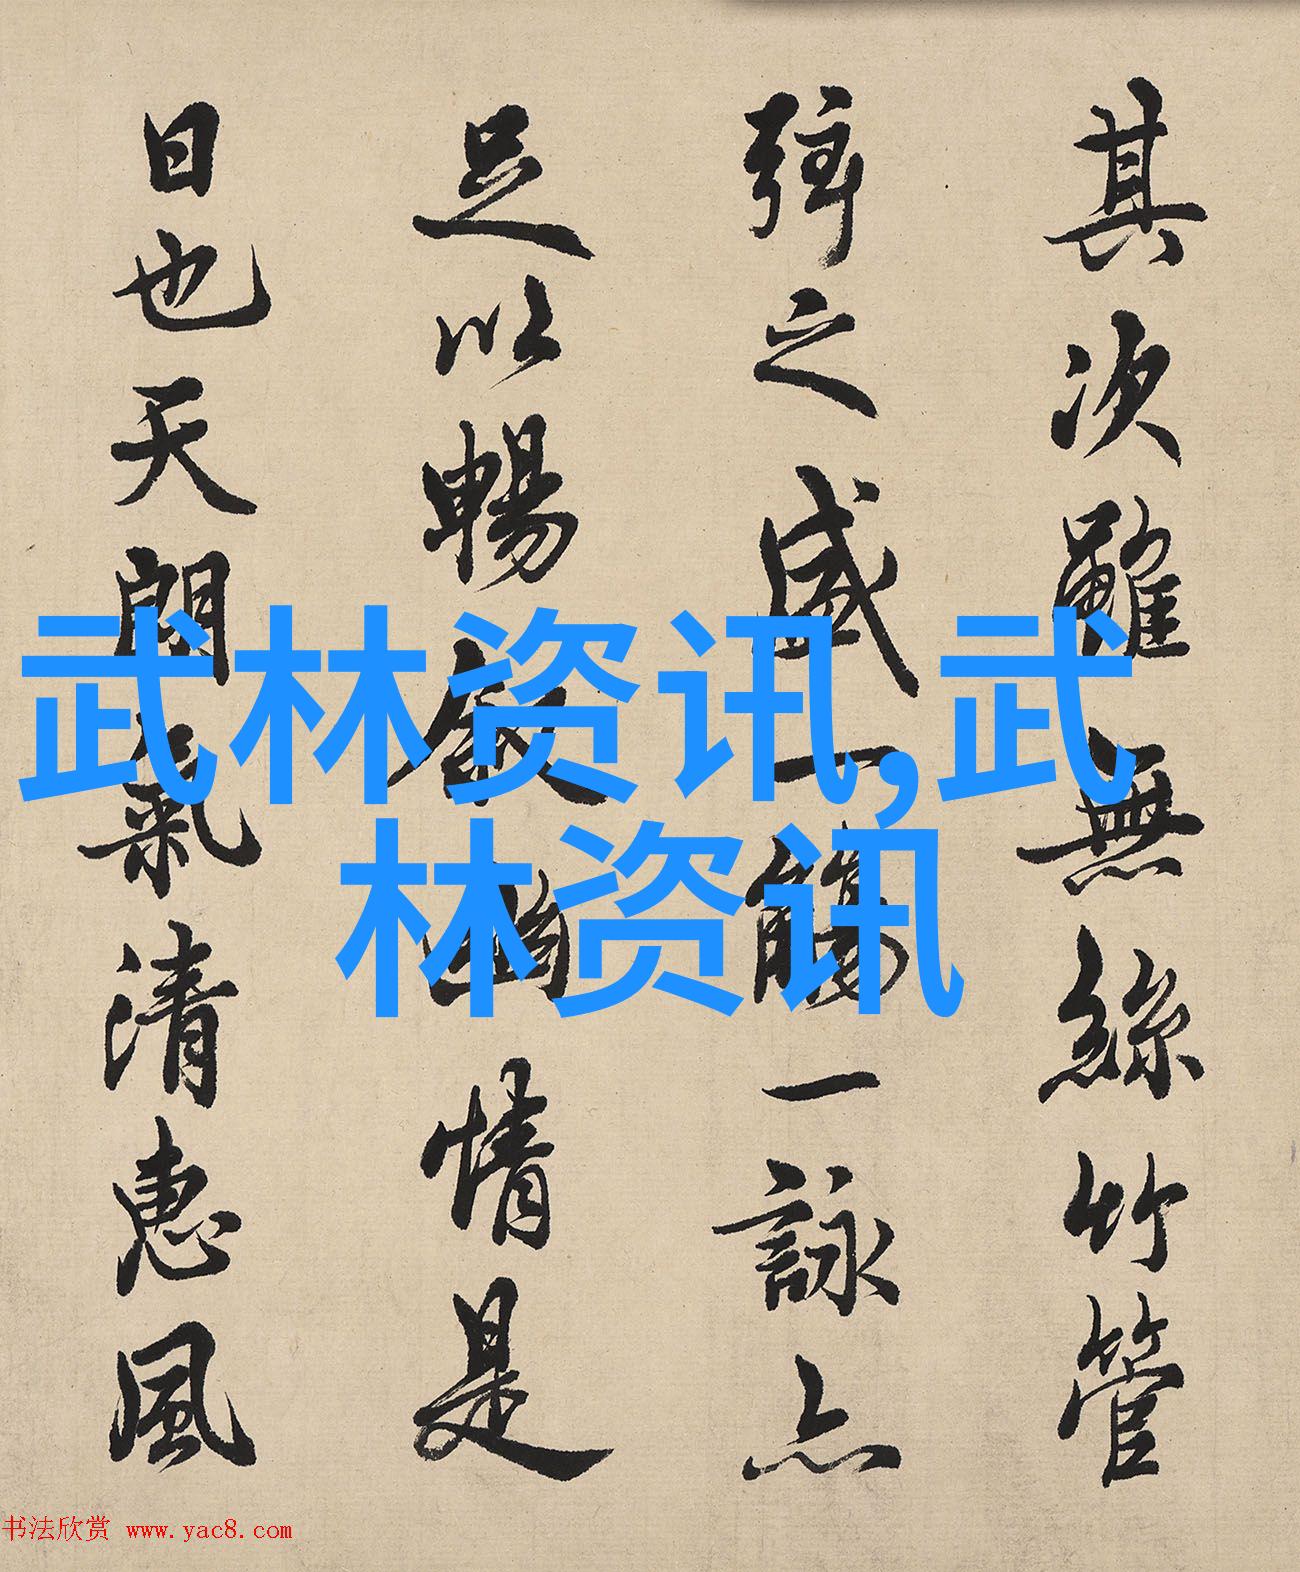 其次雖無絲竹管
弦之盛一觴一詠亦
足以暢敘幽情是
日也天朗氣清惠風
武林资讯,武
林资讯
书法欣赏 www.yac8.com